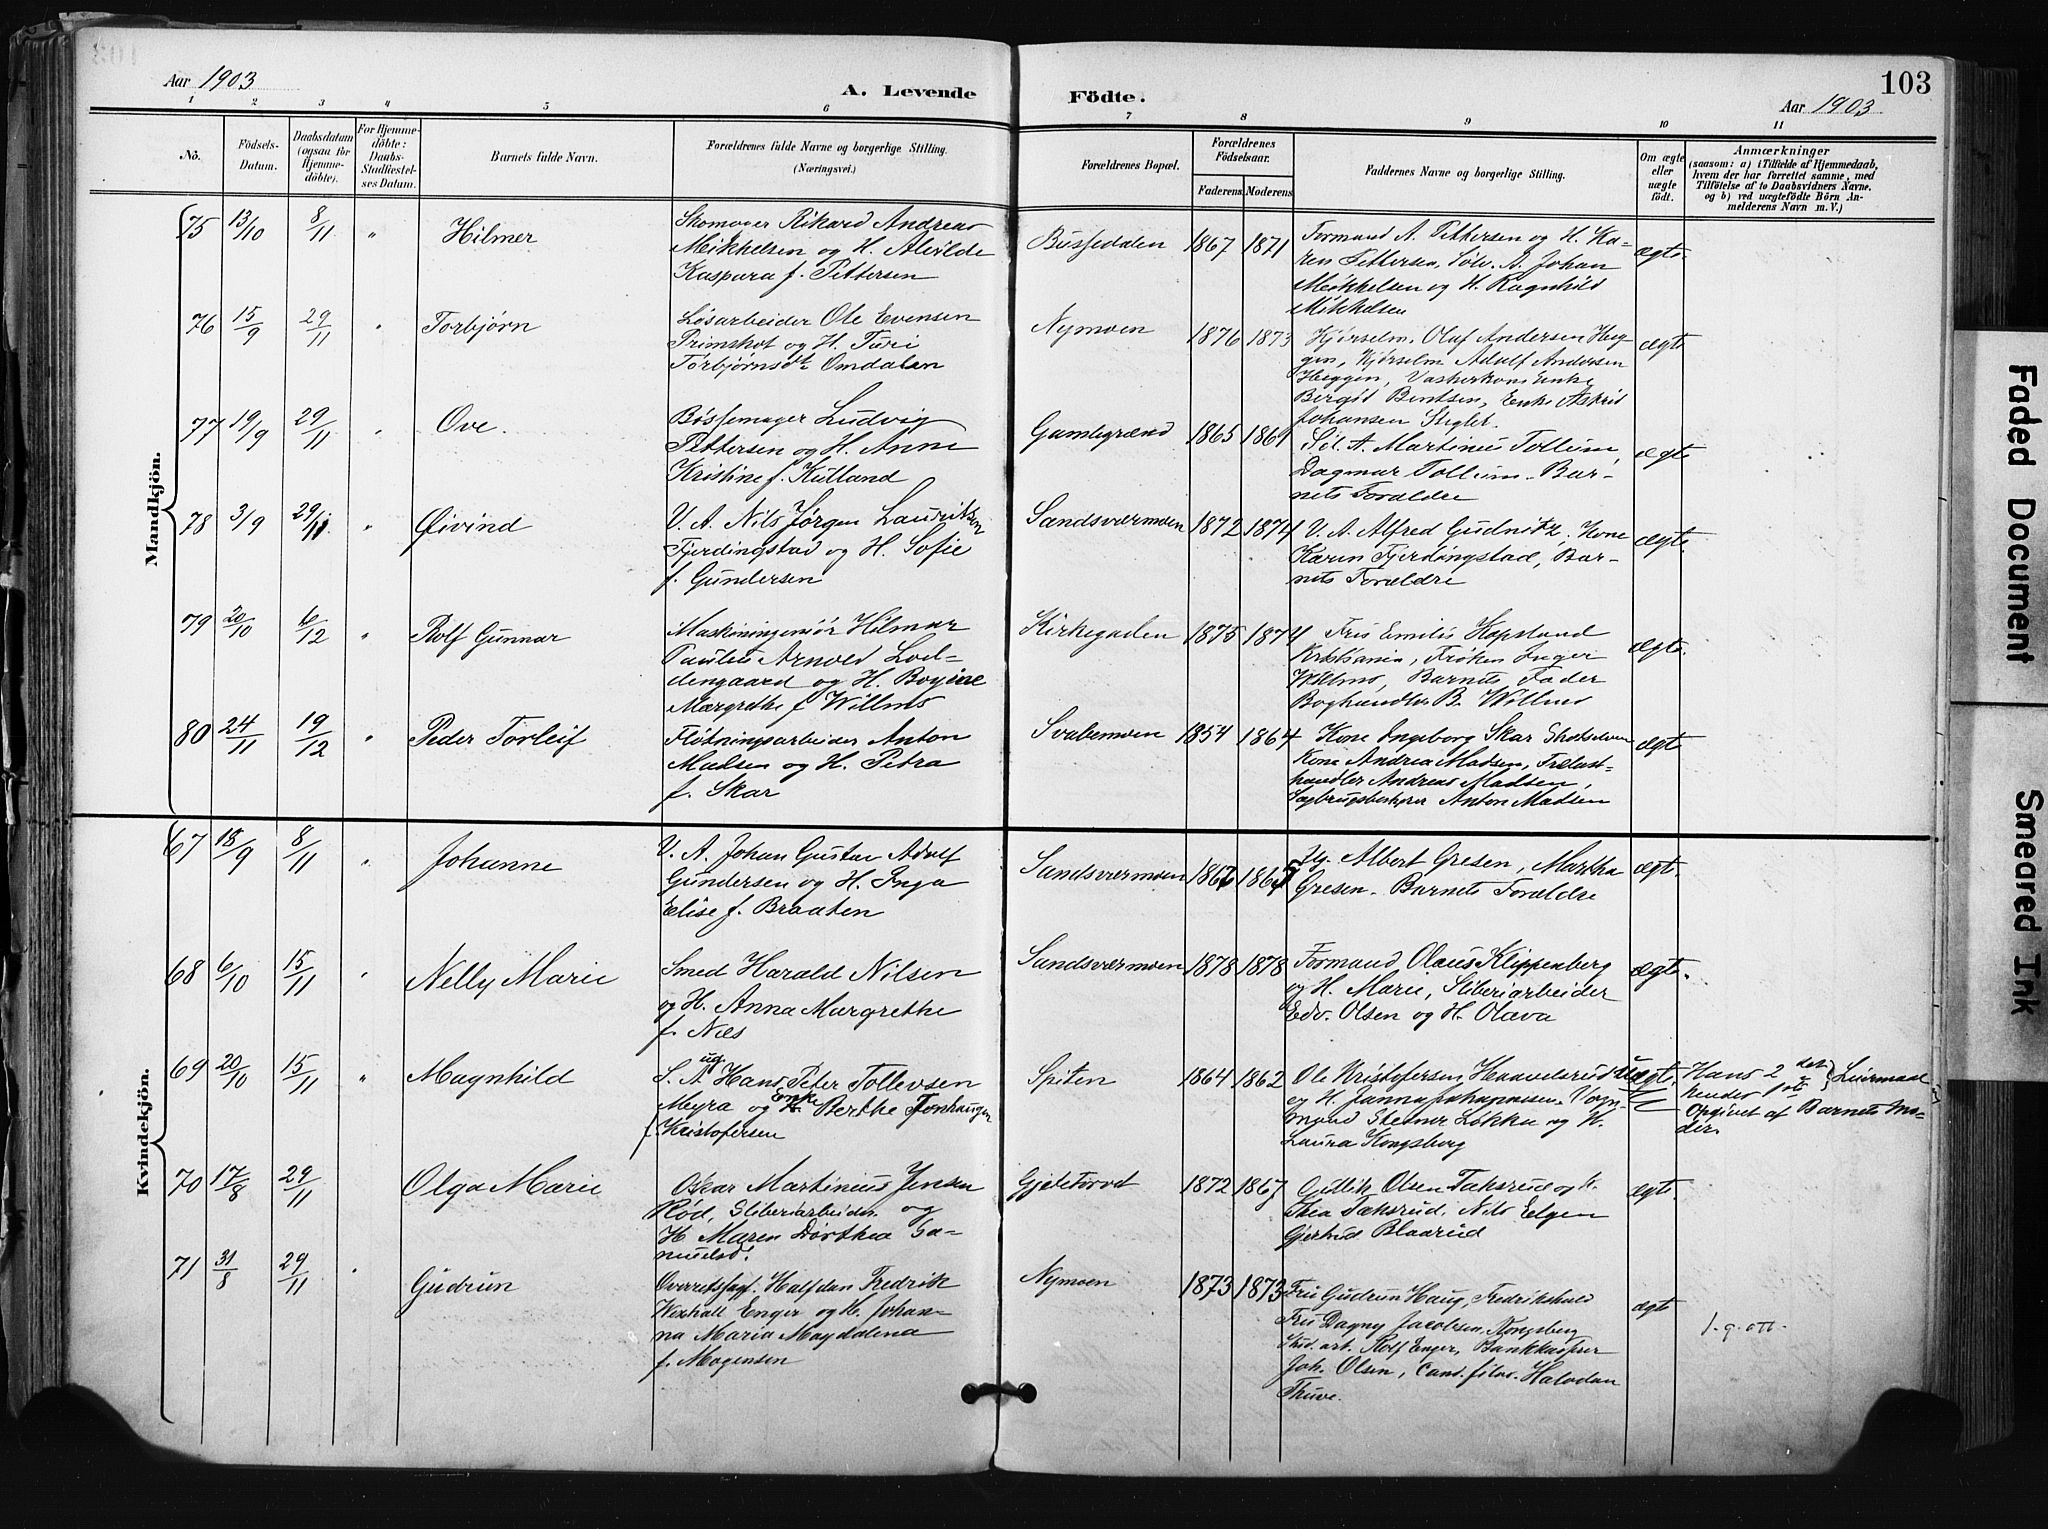 103
Aar 1903
A. Levende Födte.
Aar 1903
1 2 3 4 5 6 7 8 9 10 11
No. Födsels-Datum. Daabsdatum (ogsaa for Hjemme-döbte). For Hjemme-döbte: Daabs-Stadfæstel-ses Datum. Barnets fulde Navn. Forældrenes fulde Navne og borgerlige Stilling. (Næringsvei.) Forældrenes Bopæl. Forældrenes Födselsaar. Faderens Moderens Faddernes Navne og borgerlige Stilling. Om ægte eller uægte födt. Anmærkninger
(saasom: a) i Tilfælde af Hjemmedaab,
hvem der har forrettet samme, med
Tilföielse af to Daabsvidners Navne,
og b) ved uægtefödte Börn An-
melderens Navn m. V.)
Mandkjön.
75 13/10 8/11 " Hilmer
Skomager Rikard Andreas
Mikkelsen og H. Alvilde
Kaspara f. Pettersen
Bussedalen 1867 1871
Formand A. Pettersen og H. Ka-
ren Pettersen, Sølv. A. Johan
Mikkelsen og H. Ragnhild
Mikkelsen
ægte.
76 15/9 29/11 " Torbjørn
Løsarbeider Ole Evensen
Primskot og H. Turi
Torbjørnsdt Omdalen
Nymoen 1876 1873
Kjørselm. Olaf Andersen Heg-
gen, Kjørselm Adolf Andersen
Heggen, Vaskerkone Enke
Bergit Bentsen, Enke Astrid
Johansen Stiglet.
ægte
77 19/9 29/11 " Ove.
Bøssemager Ludvig
Pettersen og H. Anne
Kristine f. Kulland
Gamlegrænd 1865 1861
Sól. A. Martinus Tollum,
Dagmar Tollum. Bar-
nets Forældre
ægte
78 3/9 29/11 " Øivind
V. A. Nils Jørgen Lauritsen
Fjerdingstad og H. Sofie
f. Gundersen
Sandsværmoen 1872 1874
V. A. Alfred Gudnitz, Kone
Karen Fjerdingstad, Bar-
nets Forældre
ægte.
79 20/10 6/12 " Rolf Gunnar
Maskiningeniør Hilmar
Paulus Arnold Lod-
dengaard og H. Boyine
Margrethe f Willms
Kirkegaden 1875 1874
Fru Emilie Kopstad
Kristiania, Frøken Inger
Willms, Barnets Fader
Boghandler B. Willms
ægte.
80 24/11 19/12 " Peder Torleif
Fløtningsarbeider Anton
Madsen og H. Petra
f. Skar
Svabemoen 1854 1864
Kone Ingeborg Skar Skotselven
Kone Andrea Madsen, Trælast-
handler Andreas Madsen,
Sagbrugsbestyrer Anton Madsen
ægte
Kvindekjön.
67 18/9 8/11 " Johanne
V. A. Johan Gustav Adolf
Gundersen og H. Inga
Elise f. Braaten
Sandsværmoen 1866 1865
Jfg. Albert Gresen, Martha
Gresen. Barnets Forældre
ægt.
68 6/10 15/11 " Nelly Marie
Smed Harald Nilsen
og H. Anna Margrethe
f. Næs
Sandsværmoen 1878 1878
Formand Olaus Klippenberg
og H. Marie, Sliberiarbeider
Edv. Olsen og H. Olava
ægte.
69 20/10 15/11 " Magnhild
S. A. ug. Hans Peter Tollevsen
Myra og Enke Berthe Tonhaugen
f. Kristofersen
Spiten 1864 1862
Ole Kristofersen Haavelsrud
og H. Janna Johannesen. Vogn-
mand Steiner Løkka og H.
Laura Kongsberg
Uægte.
Hans 2 det } Leiermaal
hendes 1ste
Opgivet af Barnets Mo-
der.
70 17/8 29/11 Olga Marie
Oskar Martinius Jensen
Rød, Sliberiarbeider og
H Maren Dorthea Sa-
muelsd.
Gjetetorvet 1872 1867
Gullik Olsen Taksrud og H.
Thea Taksrud, Nils Elgen
Gjertrud Blaarud
ægte
71 31/8 29/11 " Gudrun
Overretssagf. Halfdan Fredrik
Wexhall Enger og H. Johan-
na Maria Magdalena
f. Mogensen
Nymoen 1873 1873
Fru Gudrun Haug, Fredrikshald
Fru Dagny Jacobsen, Kongsberg
Stud. art. Rolf Enger, Bankkasserer
Joh. Olsen, cand. filos. Halvdan
Thuve.
ægte
f. g. att.
Faded Document
Smeared Ink